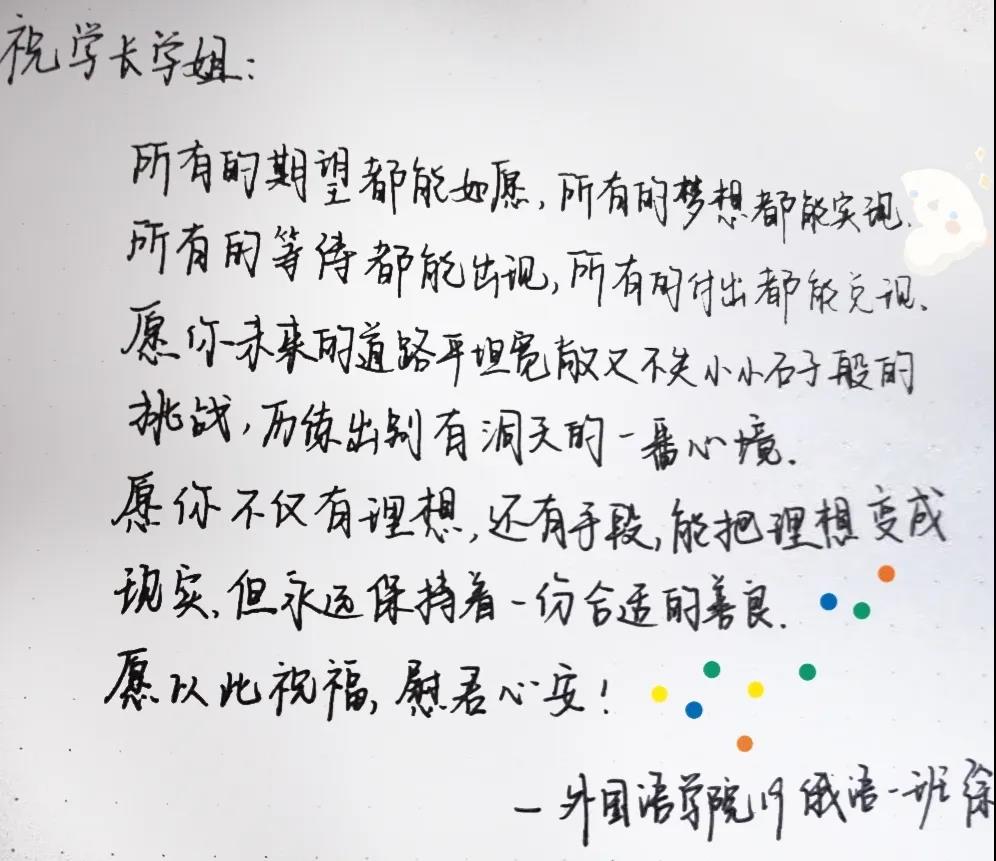 祝学长学姐:
所有的期望都能如愿,所有的梦想都能实现.
所有的等待都能出现,所有的付出都能兑现.
愿你未来的道路平坦宽敞又不失小小石子般的
挑战,历练出别有洞天的一番心境.
愿你不仅有理想,还有手段,能把理想变成
现实,但永远保持着一份合适的善良.
愿以此祝福,慰君心安!
—外国语学院19俄语一班徐